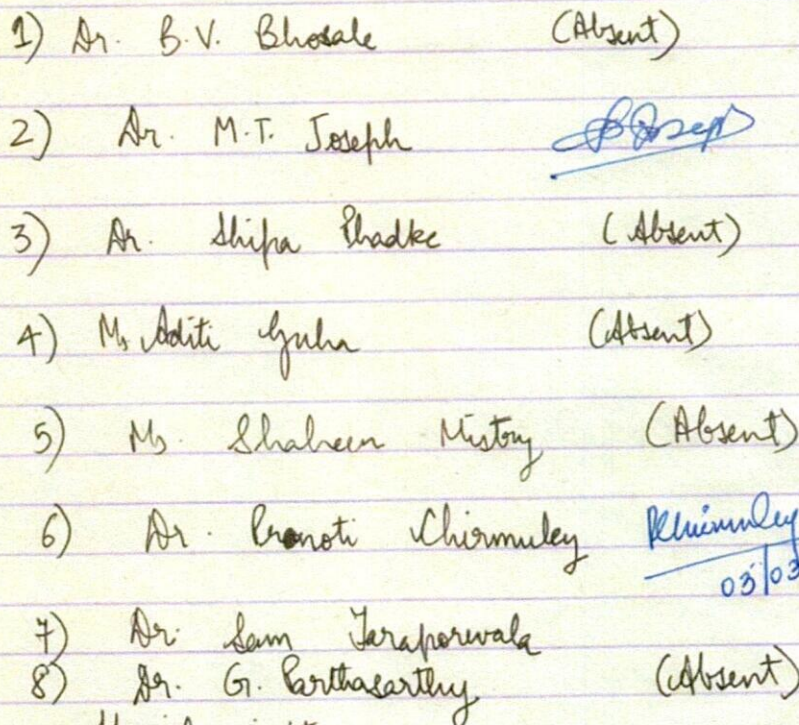 1) Dr. B.V. Bhosale (Absent)
2) Dr. M.T. Joseph Joseph
3) Dr. Shilpa Phadke (Absent)
4) Ms Aditi Guha (Absent)
5) Ms. Shaheen Mistry (Absent)
6) Dr. Pronoti Chirmuley PChirmuley
03/03
7) Dr. Sam Taraporewala
8) Dr. G. Parthasarthy (Absent)